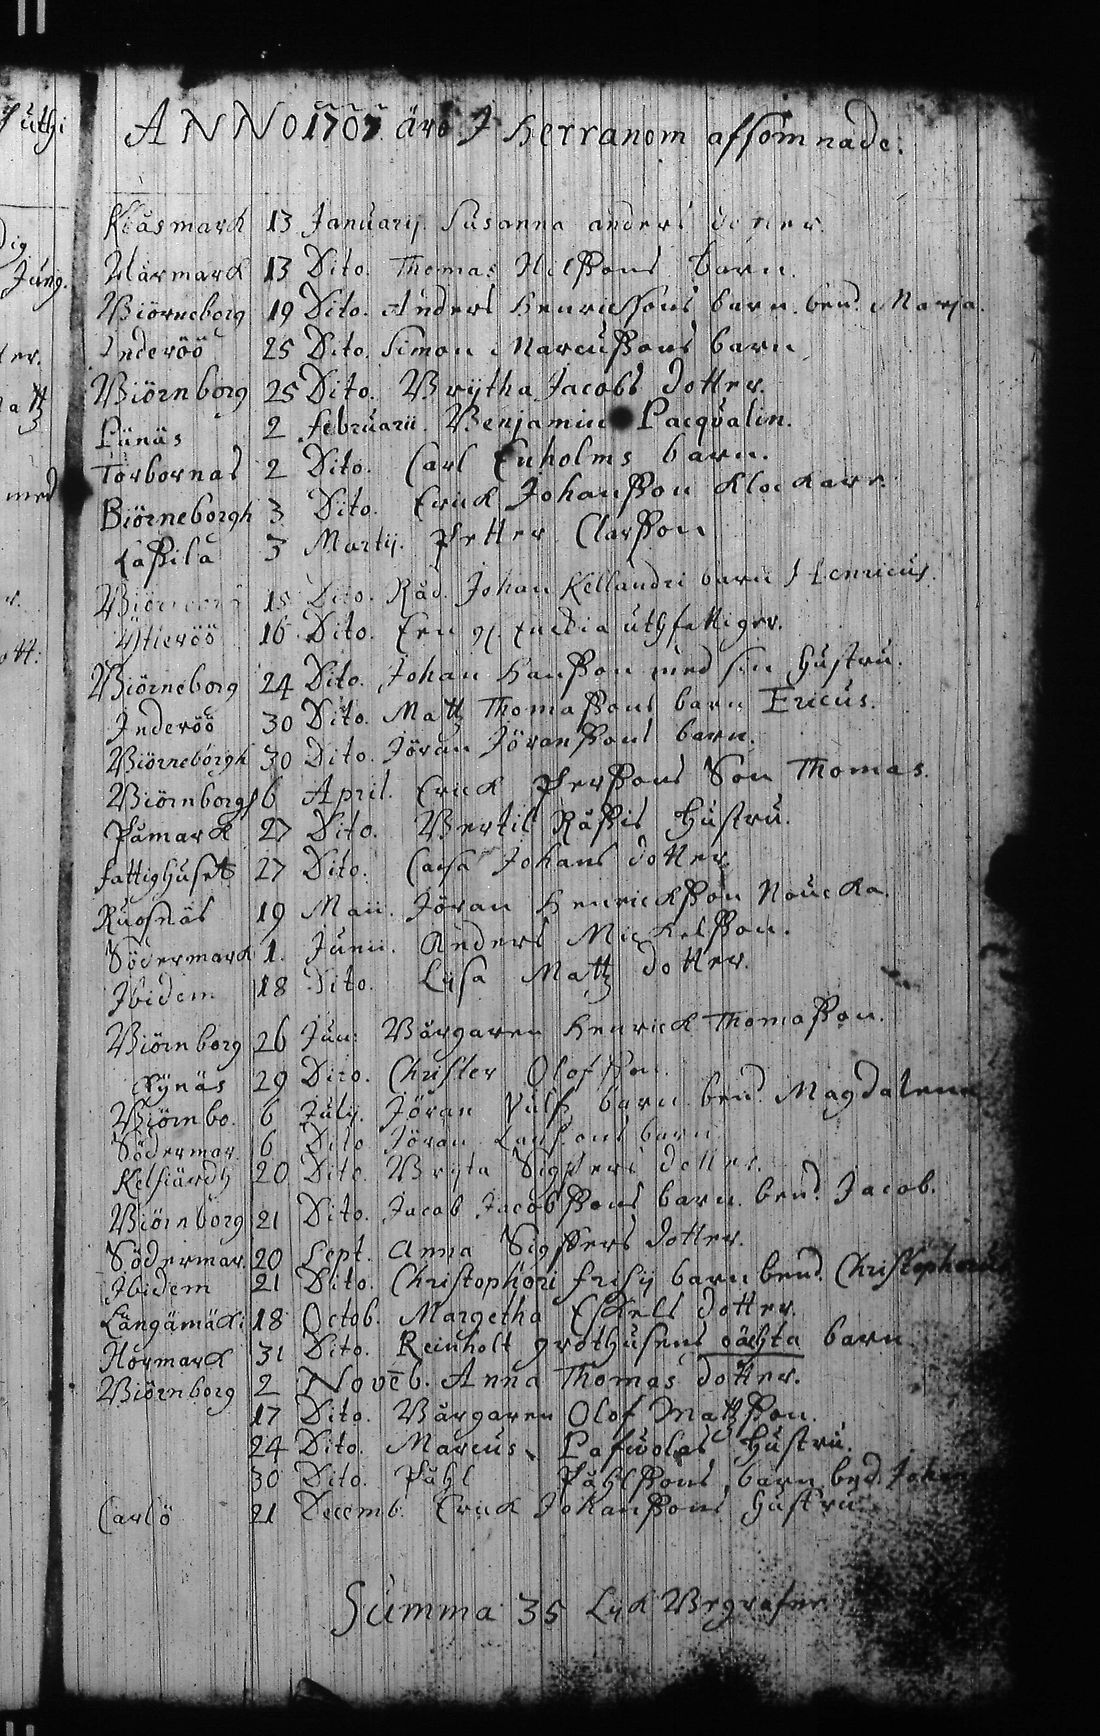 ANNO 1707 äro J Herranom afsomnade.
Klåsmark 13 Januarij Susanna anders dotter.
Hårmark 13 Dito. Thomas Nilssons barn.
Biörneborg 19 Dito. Anders Henrichssons barn. bend. Marja.
Inderöö 25 Dito. Simon Marcussons barn
Biörnborg 25 Dito. Brÿtha Jacobs dotter.
Lÿnäs 2 februarii. Benjamin Pacqvalin.
Torbornas 2 Dito. Carl Enholms barn.
Biörneborgh 3 Dito. Erick Johansson Klockare.
Lassila 3 Martij. Petter Clarsson
15 Dito. Råd. Johan Kellandri barn Henricus.
Ÿtteröö 16 Dito. Een uthfattiger.
Biörneborg 24 Dito. Johan Hansson med sin hustru.
Inderöö 30 Dito. Matz Thomassons barn Ericus.
Biörneborgh 30 Dito. Jöran Jöranssons barn.
Biörnborgh 6 April. Erick Perssons Son Thomas.
Påmark 27 Dito. Bertil Råssis Hustru.
fattighuset 27 Dito. Carsa Johans dotter.
Ruosnäs 19 Maii. Jöran Henricksson Noucka.
Södermark 1. Junii. Anders Mickelsson.
Ibidem 18 Dito. Lisa Matz dotter.
Biörnborg 26 Jun: Bårgaren Henrick Thomasson.
29 Dito. Christer Olofsson.
Biörnbo. 6 Julij. Jöran barn bend. Magdalena
Södermar. 6 Dito Jöran barn
Kelfiärdh 20 Dito. Bryta Sigfreds dotter.
Biörnborg 21 Dito. Jacob Jacobssons barn bend. Jacob.
Södermar. 20 Sept. Anna Sigfrers dotter.
Ibidem 21 Dito. Christophori frisij barn bend. Christophorus
Längämäki 18 Octob. Margetha Eskels dotter.
Norrmark 31 Dito. Reinholt grothusens oächta barn
Biörnborg 2 Noveb. Anna Thomas dotter.
17 Dito. Bårgaren Olof Mattsson.
24 Dito. Marcus Lafwolas Hustru.
30 Dito. Påhl Påhlssons barn bnd. Johan
Carlö 21 Decemb. Erick Johanssons hustru
Summa 35 Lik Begrafne